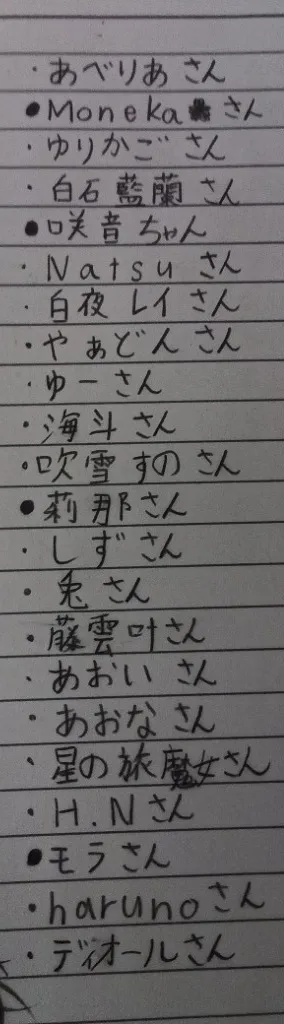 ・あべりあ さん
●Moneka さん
・ゆりかご さん
・白石 藍蘭 さん
●咲音ちゃん
・Natsu さん
・白夜 レイ さん
・やぁどん さん
・ゆーさん
・海斗さん
・吹雪すのさん
●莉那さん
・しずさん
・兎さん
・藤雲叶さん
・あおい さん
・あおな さん
・星の旅魔女さん
・H.Nさん
●モラさん
・harunoさん
・ディオールさん